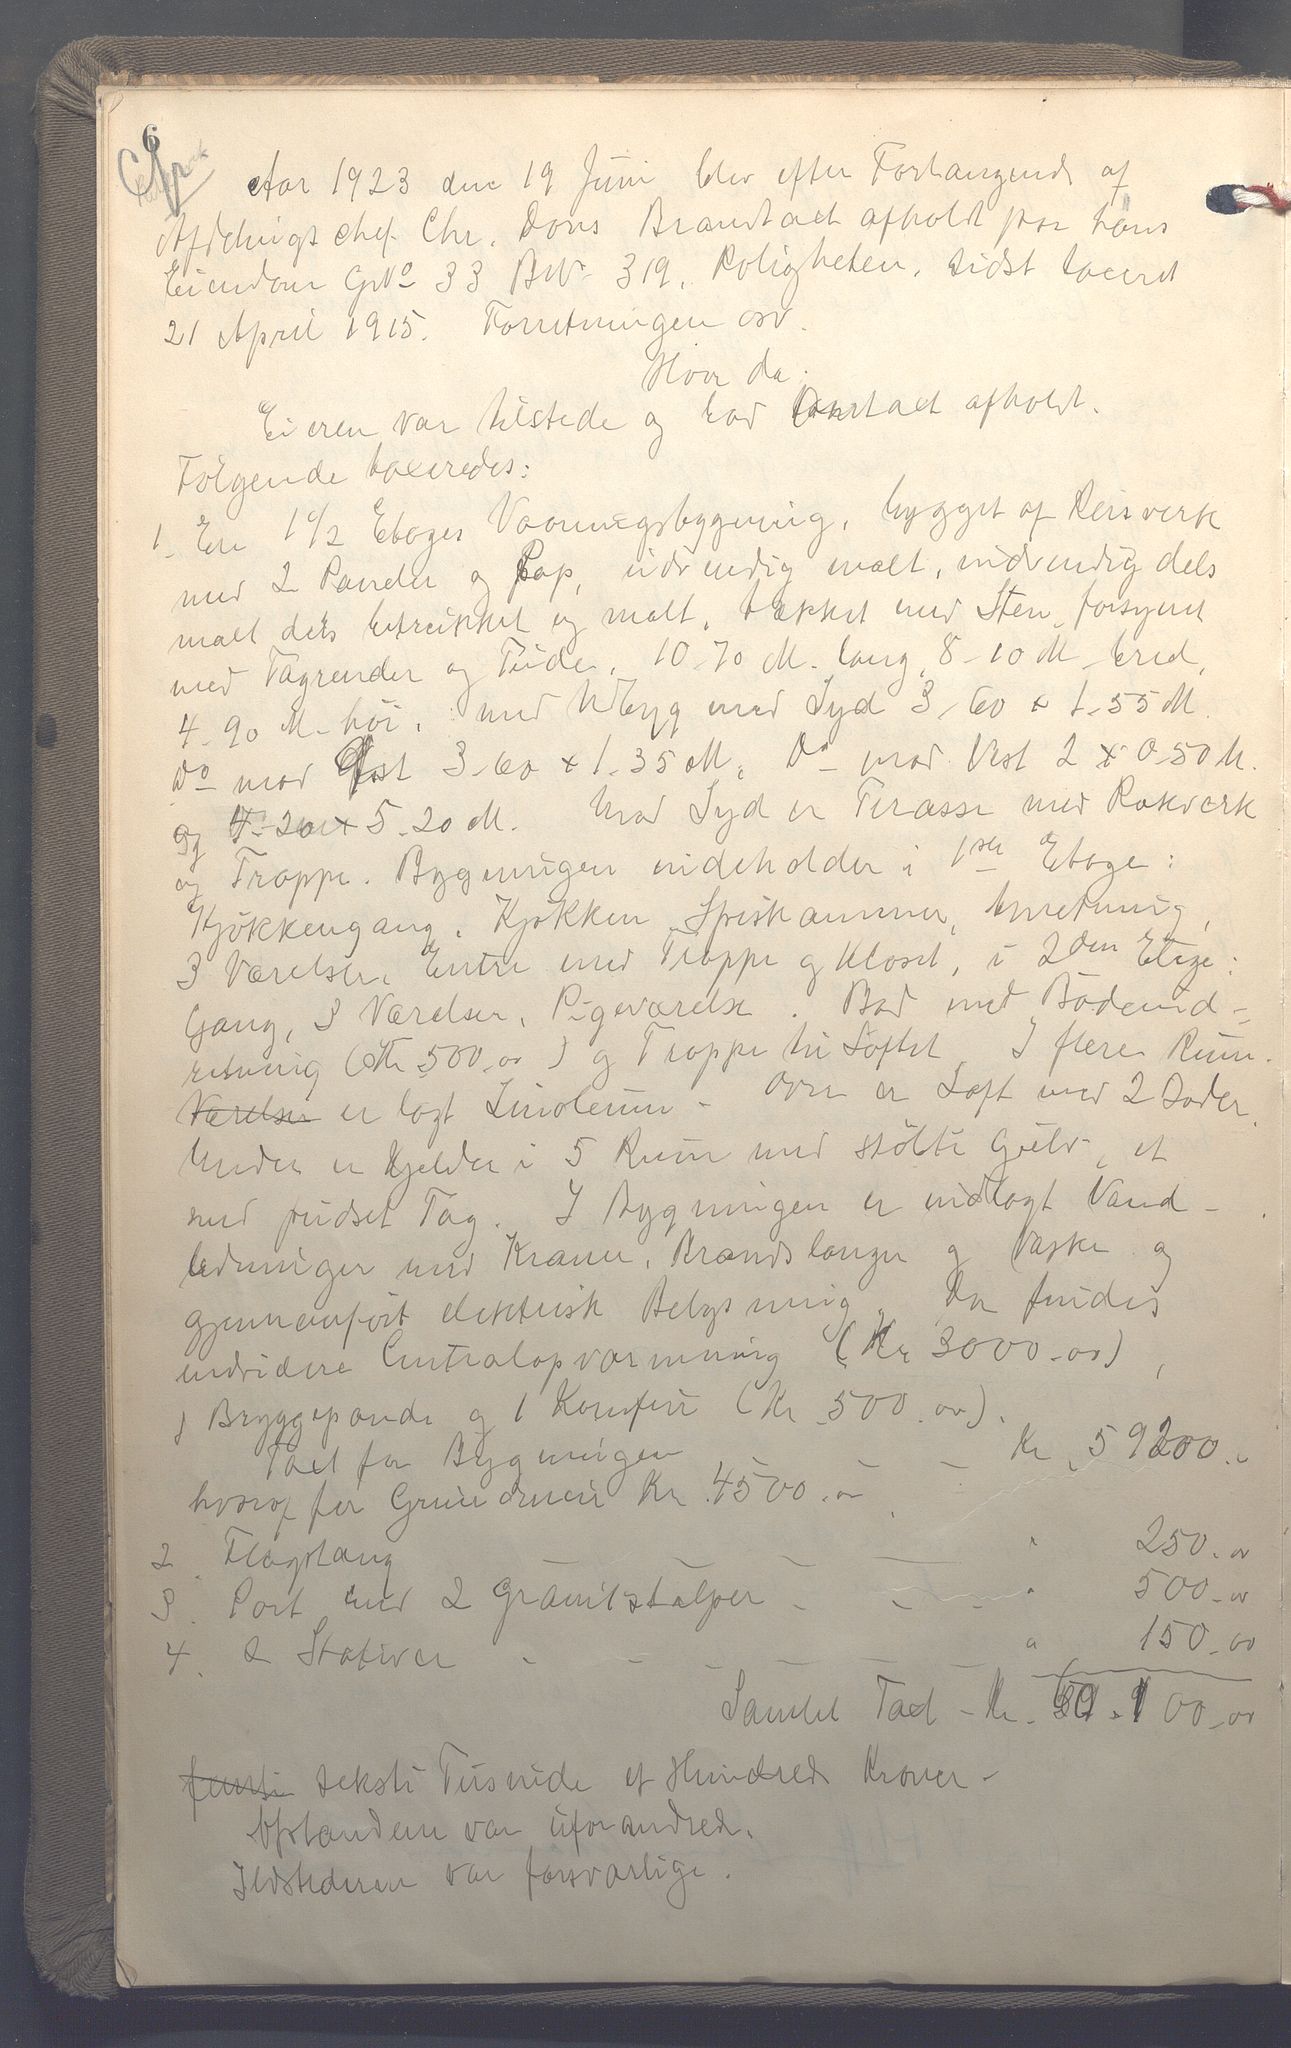 6
Aar 1923 den 19 Juni blev efter Forlangende af
Afdelingschef Chr. Dons Brandtaxt afholdt paa hans
Eiendom GNo 33 BNo 319, Roligheten, sidst taxeret
21 April 1915. Forretningen osv.
Hvor da:
Eieren var tilstede og bad Omtaxt afholdt.
Følgende taxeredes:
1. En 1 1/2 Etages Vaaningsbygning, bygget af Reisverk
med 2 Paneler og Pap, udvendig malt, indvendig dels
malt dels betrækket og malt, tækket med Sten, forsynet
med Tagrender og Nedløb, 10-70 M. lang, 8-10 M bred,
4-90 M høi, med Udbyg mod Syd 3-60 x 1-55 M.
Do mod Øst 3-60 x 1-35 M, Do mod Vest 2 x 0-50 M.
og 4-20 x 5-20 M. Mod Syd er Terasse med Rækverk
og Trappe. Bygningen indeholder i 1ste Etage:
Kjøkkengang, Kjøkken, Spiskammer, Anretning,
3 Værelser, Entre med Trappe og Kloset, i 2den Etage:
Gang, 3 Værelser, Pigeværelse. Bad med Badeind-
retning (Kr 500,00) og Trappe til Loftet. I flere Rum
Værelser er lagt Linoleum - Over er Loft med 2 Boder.
Under er Kjelder i 5 Rum med støbte Gulv, et
med pudset Tag. I Bygningen er indlagt Vand-
ledninger med Kraner, Brandslanger og Vaske og
gjennemført elektrisk Belysning. Der findes
endvidere Centralopvarmning (Kr 3000-00),
1 Bryggepande og 1 Komfur (Kr 500,00).
Taxt for Bygningen - - - Kr 59200.-
hvoraf for Grundmur Kr 4500.00
2. Flagstang - - - " 250.00
3. Port med 2 Granitstolper - - - " 500-00
4. 2 Stativer - - - " 150-00
Samlet Taxt - Kr. 60.100-00
femti seksti Tusinde et Hundrede Kroner -
Afstandene var uforandrede.
Ildstederne var forsvarlige.